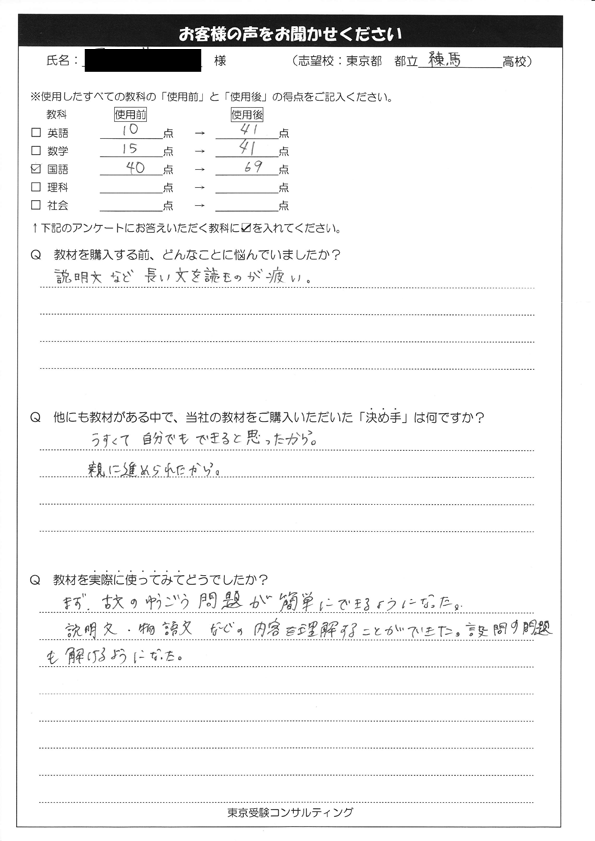 お客様の声をお聞かせください
氏名： 様 （志望校：東京都 都立 練馬 高校）
※使用したすべての教科の「使用前」と「使用後」の得点をご記入ください。
教科 使用前 使用後
□ 英語 10 点 → 41 点
□ 数学 15 点 → 41 点
☑ 国語 40 点 → 69 点
□ 理科 点 → 点
□ 社会 点 → 点
↑下記のアンケートにお答えいただく教科に☑を入れてください。
Q 教材を購入する前、どんなことに悩んでいましたか？
説明文など 長い文を読むのが
Q 他にも教材がある中で、当社の教材をご購入いただいた「決め手」は何ですか？
うすくて 自分でも できると思ったから。
親に進められたから。
Q 教材を実際に使ってみてどうでしたか？
まず、古文のゆうごう問題が簡単にできるようになった。
説明文・物語文 などの 内容を理解することができた。設問の問題
も解けるようになった。
東京受験コンサルティング